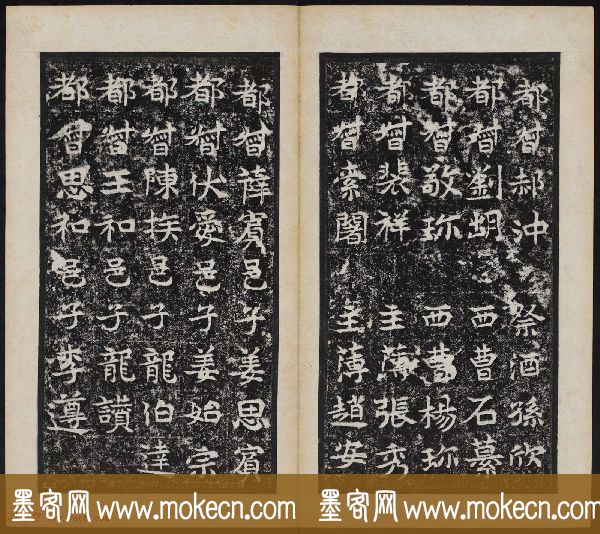 都督郝沖 祭酒孫欣
都督劉胡 西曹石
都督敬珎 西曹楊珎
都督裴祥 主薄張秀
都督索 主薄趙安
都督薛賓邑子姜思賓
都督伏愛邑子姜始宗
都督陳 邑子龍伯達
都督王和邑子龍讚
都督思和邑子李遵
墨客网 www.mokecn.com
墨客网 www.mokecn.com